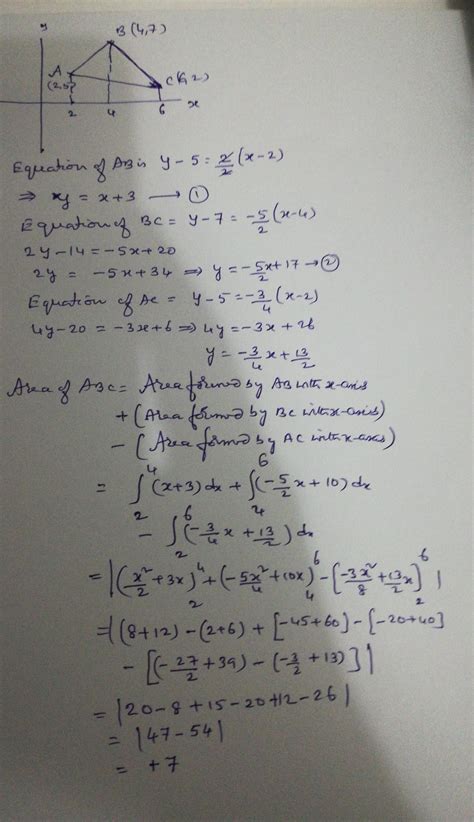 y
B (4,7)
A
(2,5)
C(6,2)
2 4 6 x
Equation of AB is y - 5 = 2/2 (x-2)
⇒ xy = x+3 ⟶ ①
Equation of BC = y-7 = -5/2 (x-4)
2y-14 = -5x+20
2y = -5x+34 ⇒ y = -5x/2+17 → ②
Equation of AC = y-5 = -3/4 (x-2)
4y-20 = -3x+6 ⇒ 4y = -3x+26
y = -3/4 x + 13/2
Area of ABC = Area formed by AB with x-axis
+ (Area formed by BC with x-axis)
- (Area formed by AC with x-axis)
= ∫₂⁴ (x+3) dx + ∫₄⁶ (-5/2 x + 10) dx
- ∫₂⁶ (-3/4 x + 13/2) dx
= |(x²/2 + 3x)₂⁴ + (-5x²/4 + 10x)₄⁶ - [-3x²/8 + 13/2 x]₂⁶|
= |(8+12) - (2+6) + [-45+60] - [-20+40]
- [(-27/2 + 39) - (-3/2 + 13)]|
= |20-8+15-20+12-26|
= |47-54|
= +7